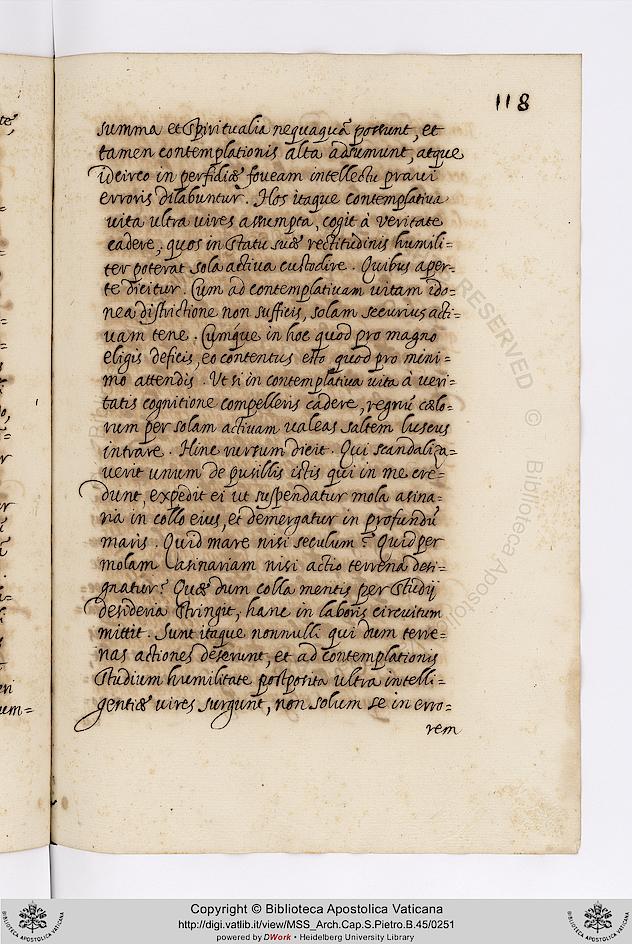 118
summa et Spiritualia nequaquā possunt, et
tamen contemplationis alta adsumunt, atque
idcirco in perfidiæ foveam intellectu pravi
erroris dilabuntur. Hos itaque contemplativa
vita ultra vires assumpta, cogit à veritate
cadere, quos in Statu suæ rectitudinis humili=
ter poterat sola activa custodire. Quibus aper=
te dicitur. Cum ad contemplativam vitam ido=
nea districtione non sufficis, solam securius acti=
vam tene. Cumque in hoc quod pro magno
eligis deficis, eo contentus esto quod pro mini=
mo attendis. Ut si in contemplativa vita à veri=
tatis cognitione compelleris cadere, regnū cœlo=
rum per solam activam valeas saltem luscus
intrare. Hinc rursum dicit. Qui scandaliza=
verit unum de pusillis istis qui in me cre=
dunt, expedit ei ut suspendatur mola asina=
ria in collo eius, et demergatur in profundū
maris. Quid mare nisi seculum? Quid per
molam asinariam nisi actio terrena desi=
gnatur? Quæ dum colla mentis per Studij
desideria Stringit, hanc in laboris circuitum
mittit. Sunt itaque nonnulli qui dum terre=
nas actiones deserunt, et ad contemplationis
Studium humilitate postposita ultra intelli=
gentiæ vires surgunt, non solum se in erro=
rem
RESERVED © Biblioteca Apostolica
Copyright © Biblioteca Apostolica Vaticana
http://digi.vatlib.it/view/MSS_Arch.Cap.S.Pietro.B.45/0251
powered by DWork • Heidelberg University Library